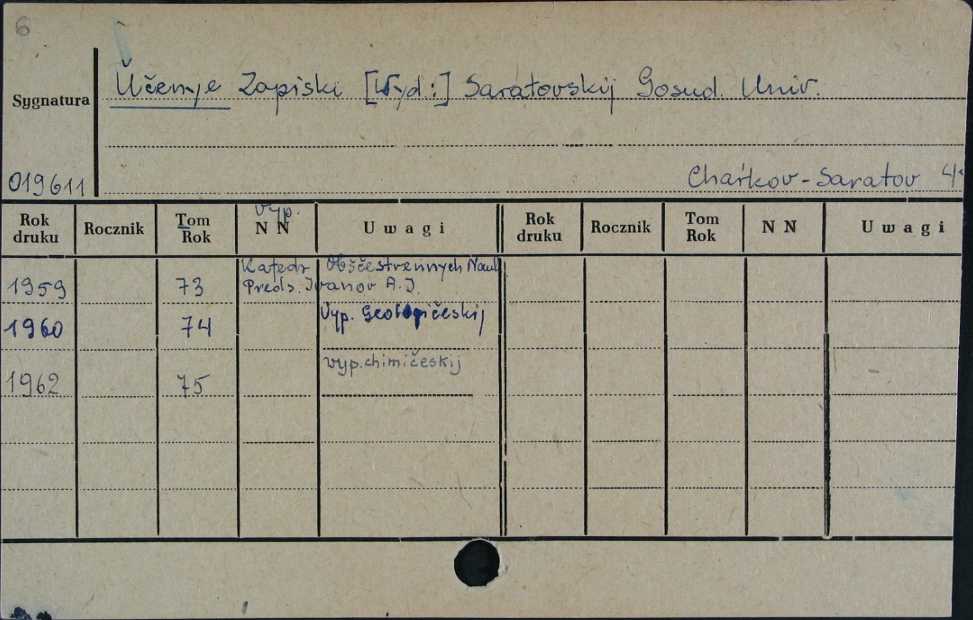 6
Učenye Zapiski [Wyd:] Saratovskij Gosud. Univ.
Sygnatura
019611
Charkov-Saratov 4°
Rok druku Rocznik Tom Rok Vyp. N N Uwagi Rok druku Rocznik Tom Rok N N Uwagi
Kafedr Obščestvennych Nauk
1959 73 Preds. Ivanov A.I.
1960 74 Vyp. Geologičeskij
vyp. chimičeskij
1962 75